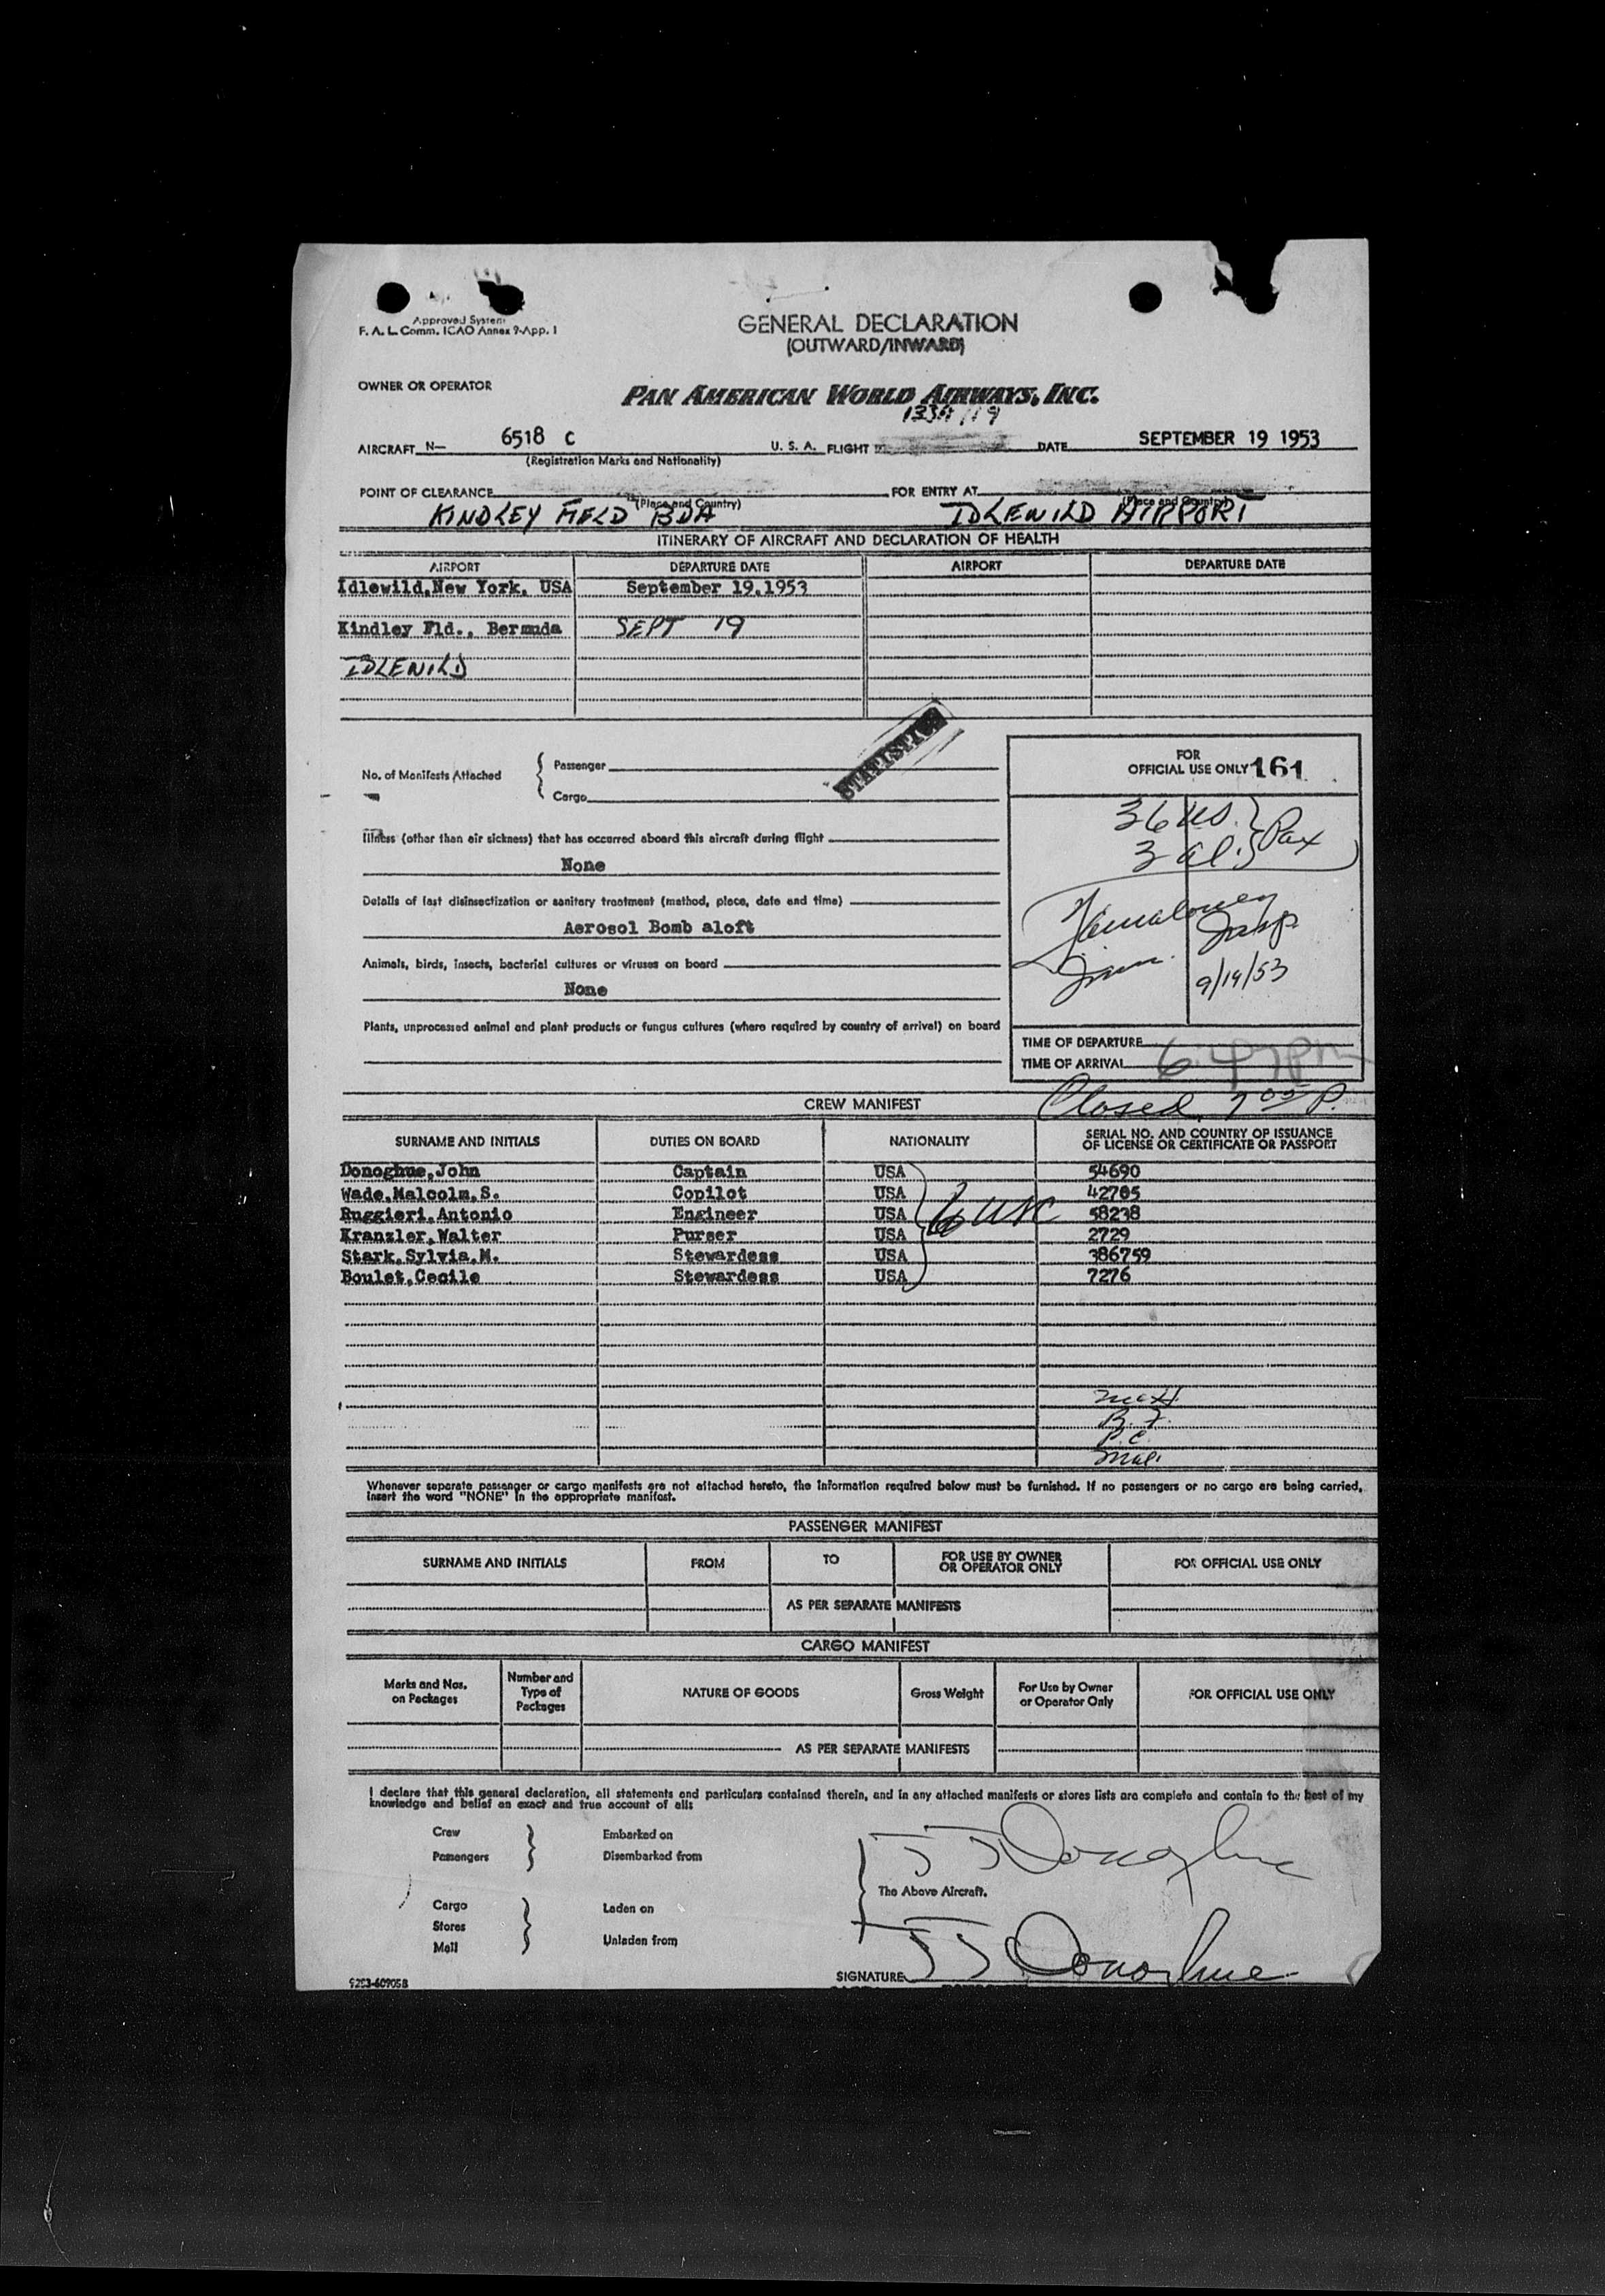 Approved System
F. A. L. Comm. ICAO Annex 9-App. 1
GENERAL DECLARATION
(OUTWARD/INWARD)
OWNER OR OPERATOR
PAN AMERICAN WORLD AIRWAYS, INC.
AIRCRAFT N— 6518 C U. S. A. FLIGHT DATE SEPTEMBER 19 1953
(Registration Marks and Nationality)
POINT OF CLEARANCE FOR ENTRY AT
(Place and Country) (Place and Country)
KINDLEY FIELD BDA IDLEWILD AIRPORT
ITINERARY OF AIRCRAFT AND DECLARATION OF HEALTH
AIRPORT DEPARTURE DATE AIRPORT DEPARTURE DATE
Idlewild,New York, USA September 19,1953
Kindley Fld., Bermuda SEPT 19
IDLEWILD
STATISTICS
No. of Manifests Attached
Passenger
Cargo
FOR
OFFICIAL USE ONLY 161
36 US.
3 al. Pax
Illness (other than air sickness) that has occurred aboard this aircraft during flight
None
Details of last disinsectization or sanitary treatment (method, place, date and time)
Aerosol Bomb aloft
Insp.
Imm.
9/19/53
Animals, birds, insects, bacterial cultures or viruses on board
None
Plants, unprocessed animal and plant products or fungus cultures (where required by country of arrival) on board
TIME OF DEPARTURE
TIME OF ARRIVAL 6:47pm
Closed 7 05 P.
CREW MANIFEST
SURNAME AND INITIALS DUTIES ON BOARD NATIONALITY SERIAL NO. AND COUNTRY OF ISSUANCE
OF LICENSE OR CERTIFICATE OR PASSPORT
Donoghue,John Captain USA 54690
Wade,Malcolm,S. Copilot USA 42785
Ruggieri,Antonio Engineer USA 6 USC 58238
Kranzler,Walter Purser USA 2729
Stark,Sylvia,M. Stewardess USA 386759
Boulet,Cecile Stewardess USA 7276
P.C.
Whenever separate passenger or cargo manifests are not attached hereto, the information required below must be furnished. If no passengers or no cargo are being carried,
insert the word "NONE" in the appropriate manifest.
PASSENGER MANIFEST
SURNAME AND INITIALS FROM TO FOR USE BY OWNER
OR OPERATOR ONLY FOR OFFICIAL USE ONLY
AS PER SEPARATE MANIFESTS
CARGO MANIFEST
Marks and Nos.
on Packages
Number and
Type of
Packages
NATURE OF GOODS
Gross Weight
For Use by Owner
or Operator Only
FOR OFFICIAL USE ONLY
AS PER SEPARATE MANIFESTS
I declare that this general declaration, all statements and particulars contained therein, and in any attached manifests or stores lists are complete and contain to the best of my
knowledge and belief an exact and true account of all:
Crew Embarked on
Passengers Disembarked from
JJ Donoghue
The Above Aircraft.
Cargo Laden on
Stores
Mail Unladen from
SIGNATURE JJ Donoghue
9253-60905B